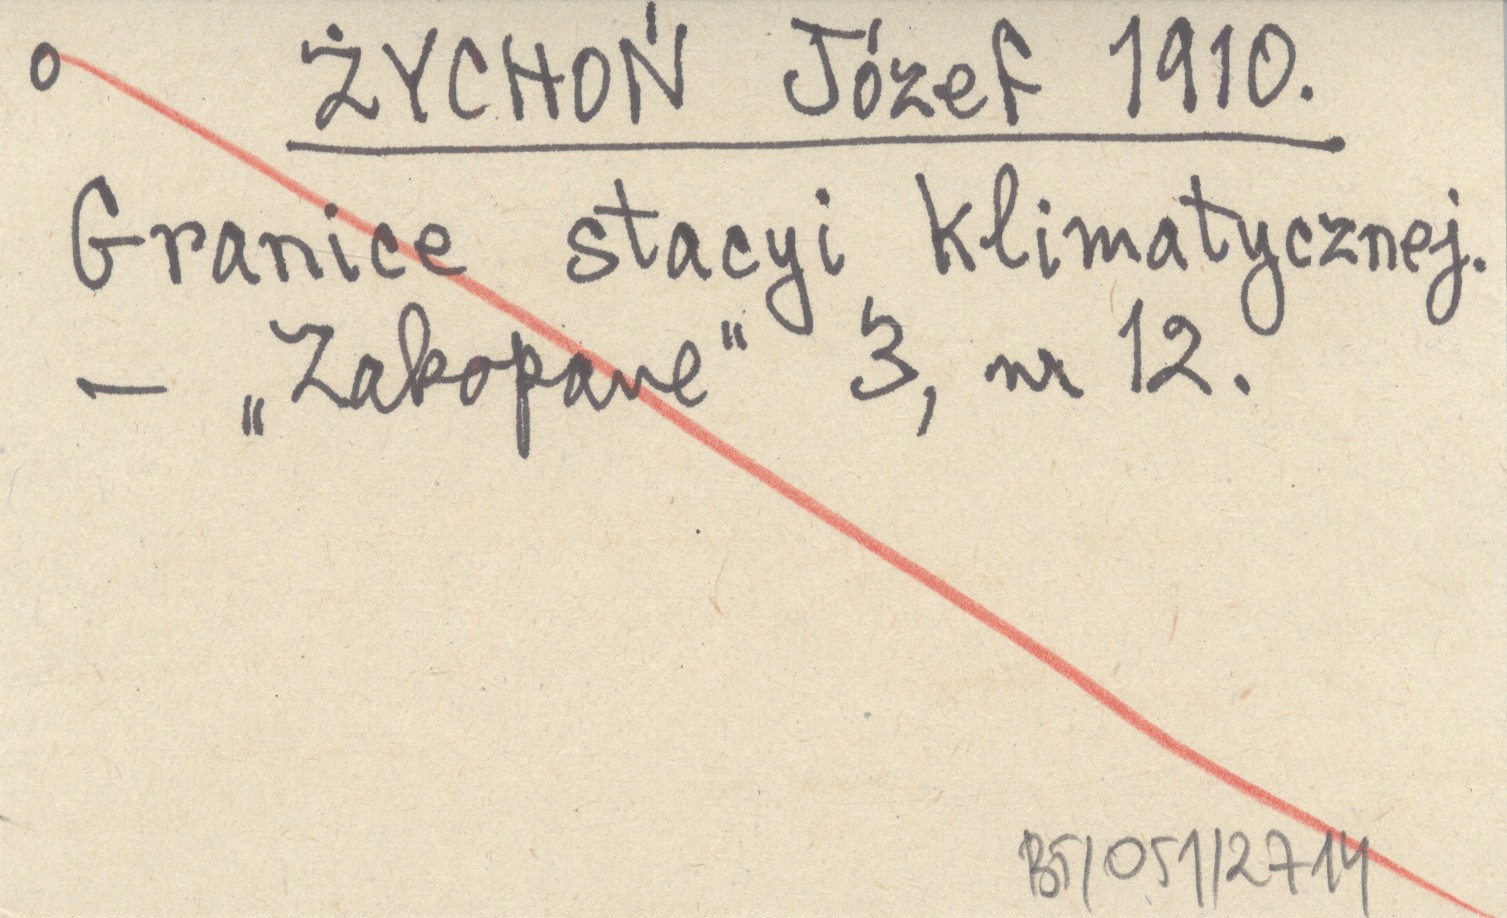 o ŻYCHOŃ Józef 1910.
Granice stacyi klimatycznej.
— „Zakopane" 3, nr 12.
BT/051/2714